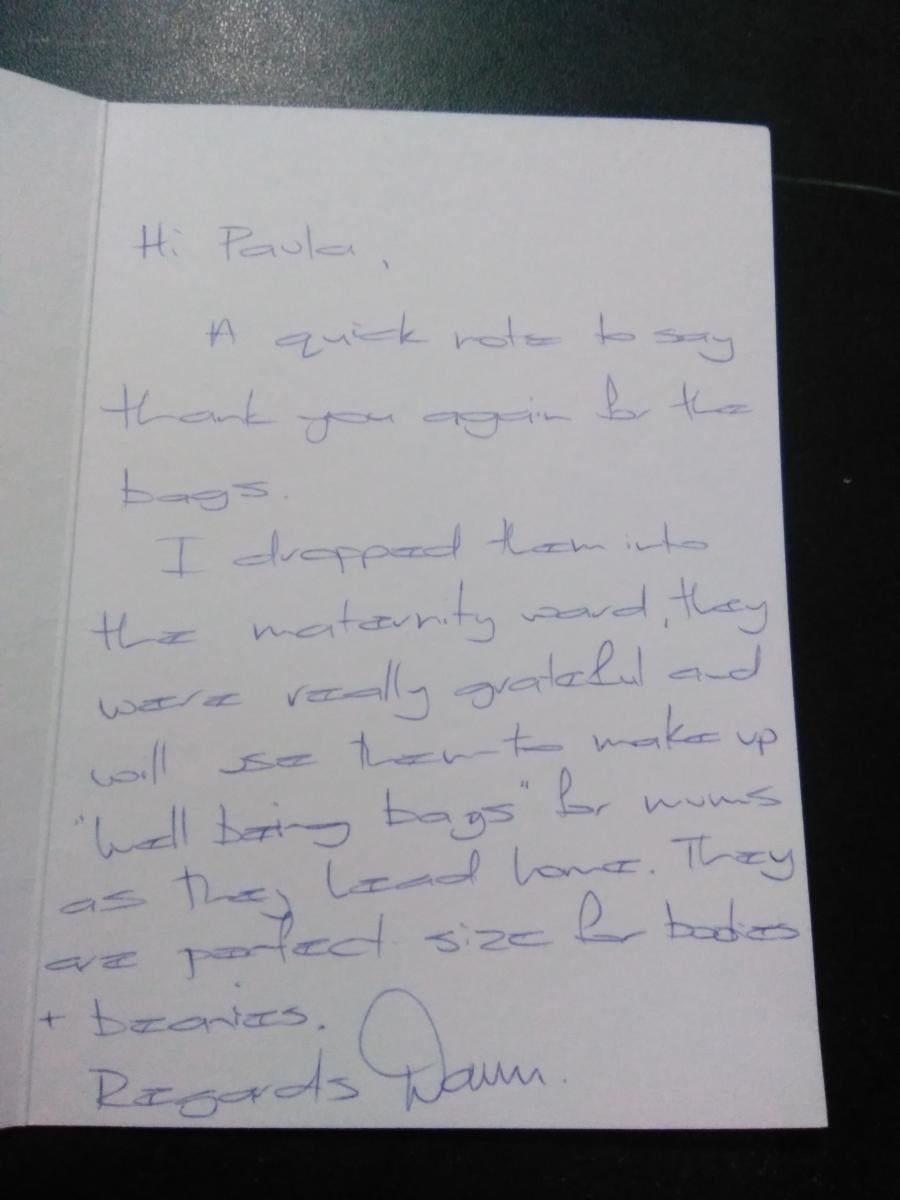 Hi Paula,
A quick note to say
thank you again for the
bags.
I dropped them into
the maternity ward, they
were really grateful and
will use them to make up
"Well being bags" for mums
as they head home. They
are perfect size for bodies
+ beanies.
Regards Dawn.